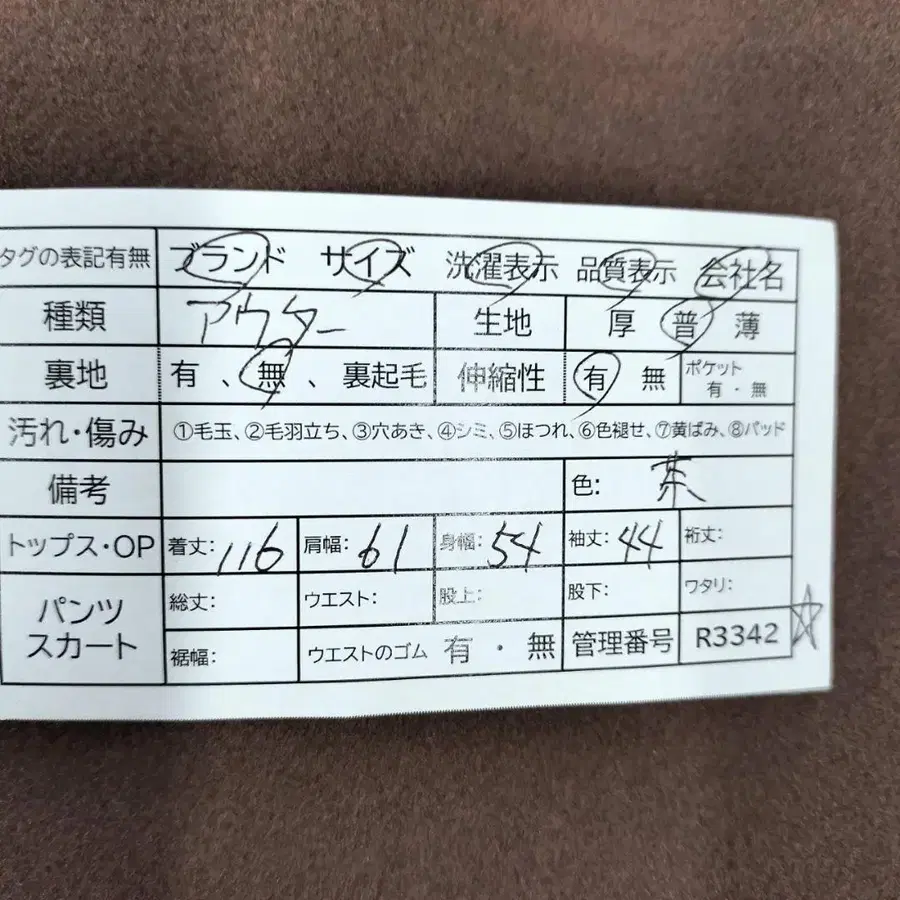 タグの表記有無 ブランド サイズ 洗濯表示 品質表示 会社名
種類 アウター 生地 厚 普 薄
裏地 有、無、裏起毛 伸縮性 有 無 ポケット 有・無
汚れ・傷み ①毛玉、②毛羽立ち、③穴あき、④シミ、⑤ほつれ、⑥色褪せ、⑦黄ばみ、⑧パッド
備考 色: 茶
トップス・OP 着丈: 116 肩幅: 61 身幅: 54 袖丈: 44 裄丈:
パンツ スカート 総丈: ウエスト: 股上: 股下: ワタリ:
裾幅: ウエストのゴム 有・無 管理番号 R3342